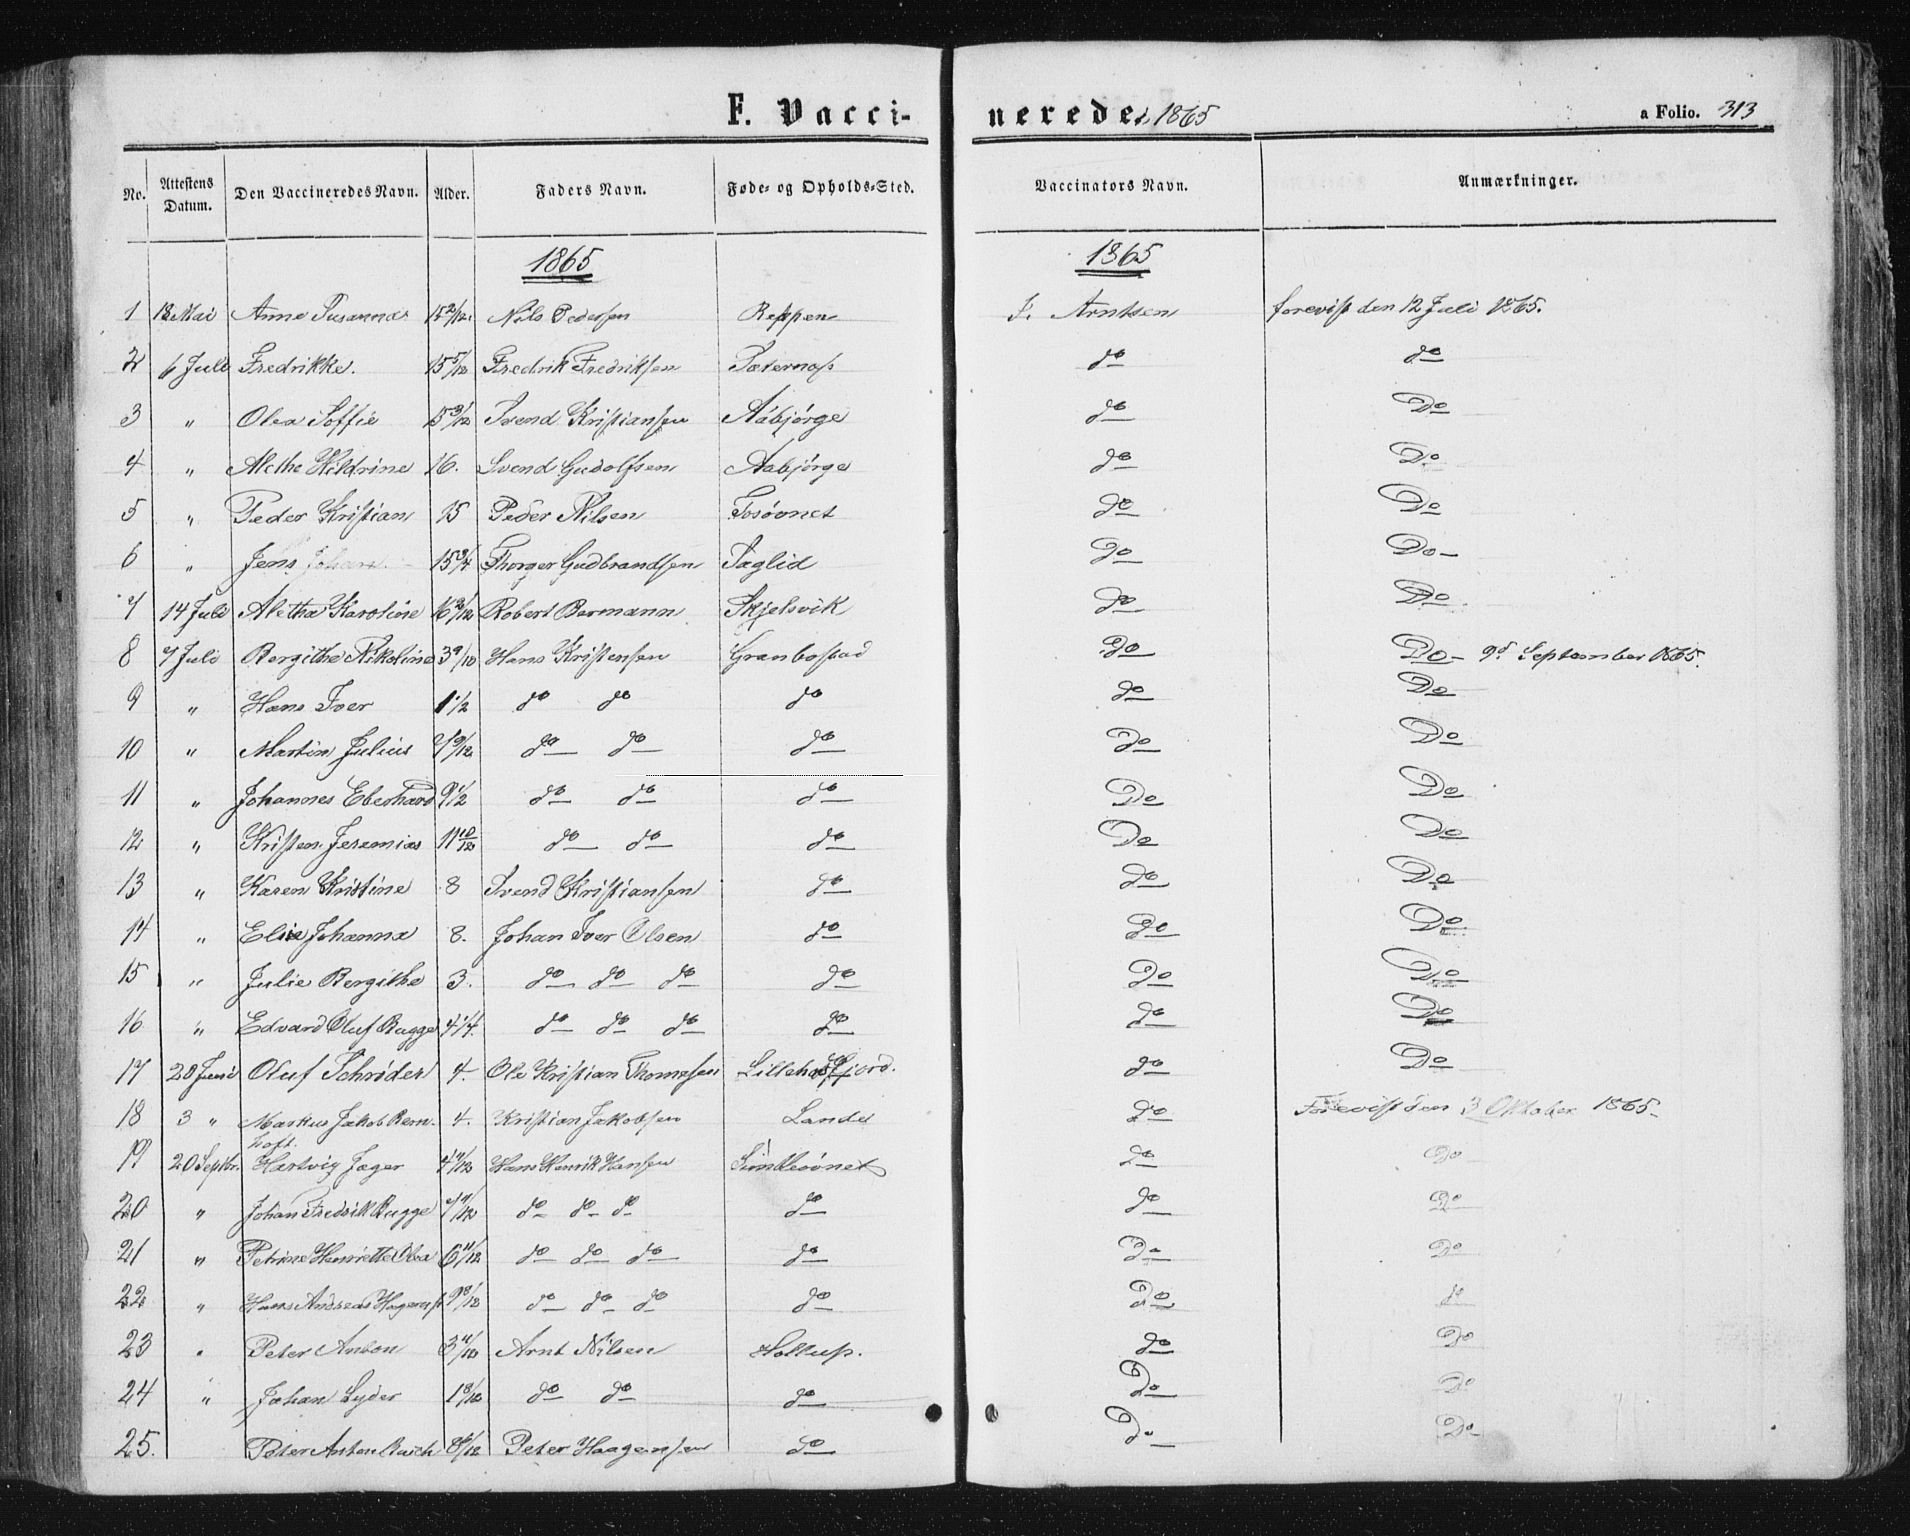 F. Vaccinerede. i 1865 a Folio. 313
No. Attestens Datum. Den Vaccineredes Navn. Alder. Faders Navn. Føde- og Opholds-Sted. Vaccinators Navn. Anmærkninger.
1865 1865
1 Mai Anne Susanna 15 2/12 Nils Pedersen Reppen Arntsen forevist den 12 Juli 1865.
2 6 Juli Fredrikke. 15 5/12 Fredrik Fredriksen Sæternæs do do
3 " Olea Soffie 15 3/12 Svend Kristiansen Aabjørge do Do
4 " Alethe 16. Svend Gudolfsen Aabjørge do Do
5 " Peder Kristian 15 Peder Nilsen Tosøvnet do Do
6 " Jens Johan 15 3/4 Thorger Gudbrandsen Saglid do Do
7 14 Juli Aletha Karoline 16 2/12 Robert Bormann Skjelsvik do Do
8 7 Juli Bergithe Nikoline 3 9/10 Hans Kristensen Granbostad Do Do 9d September 1865.
9 " Hans Iver 1 1/2 do do do do Do
10 " Martin Julius 7 9/12 do do do Do Do
11 " Johannes Eberhard 9 1/2 do do do Do Do
12 " Kristen Jeremias 11 10/12 do do do Do Do
13 " Karen Kristine 8 Svend Kristiansen do do Do
14 " Johanna 8. Johan Iver Olsen do do Do
15 " Julie Bergitha 3. do do do do Do Do
16 " Edvard Oluf Bugge 4 1/4. do do do do do Do
17 20 Juni Oluf Schrøder 4. Ole Kristian Thomesen do Do
18 3 " Markus Jakob Bern- 4. Kristian Jakobsen Lande do Forevist den 3 Oktober 1865.
hoft.
19 20 Septbr. Hartvig Jæger 4 Hans Henrik Hansen do Do
20 " Johan Fredrik Bugge do do do do do Do
21 " Petrine Henriette Olea 6 11/12 do do do do Do Do
22 " Hans Andreas 9 8/12 do do do do Do do
23 " Peter Anton 3 Arnt Nilsen Hollup. do Do
24 " Johan Lyder 1 8/12 do do do Do Do
25. Peter Anton Peter Haagensen do Do Do